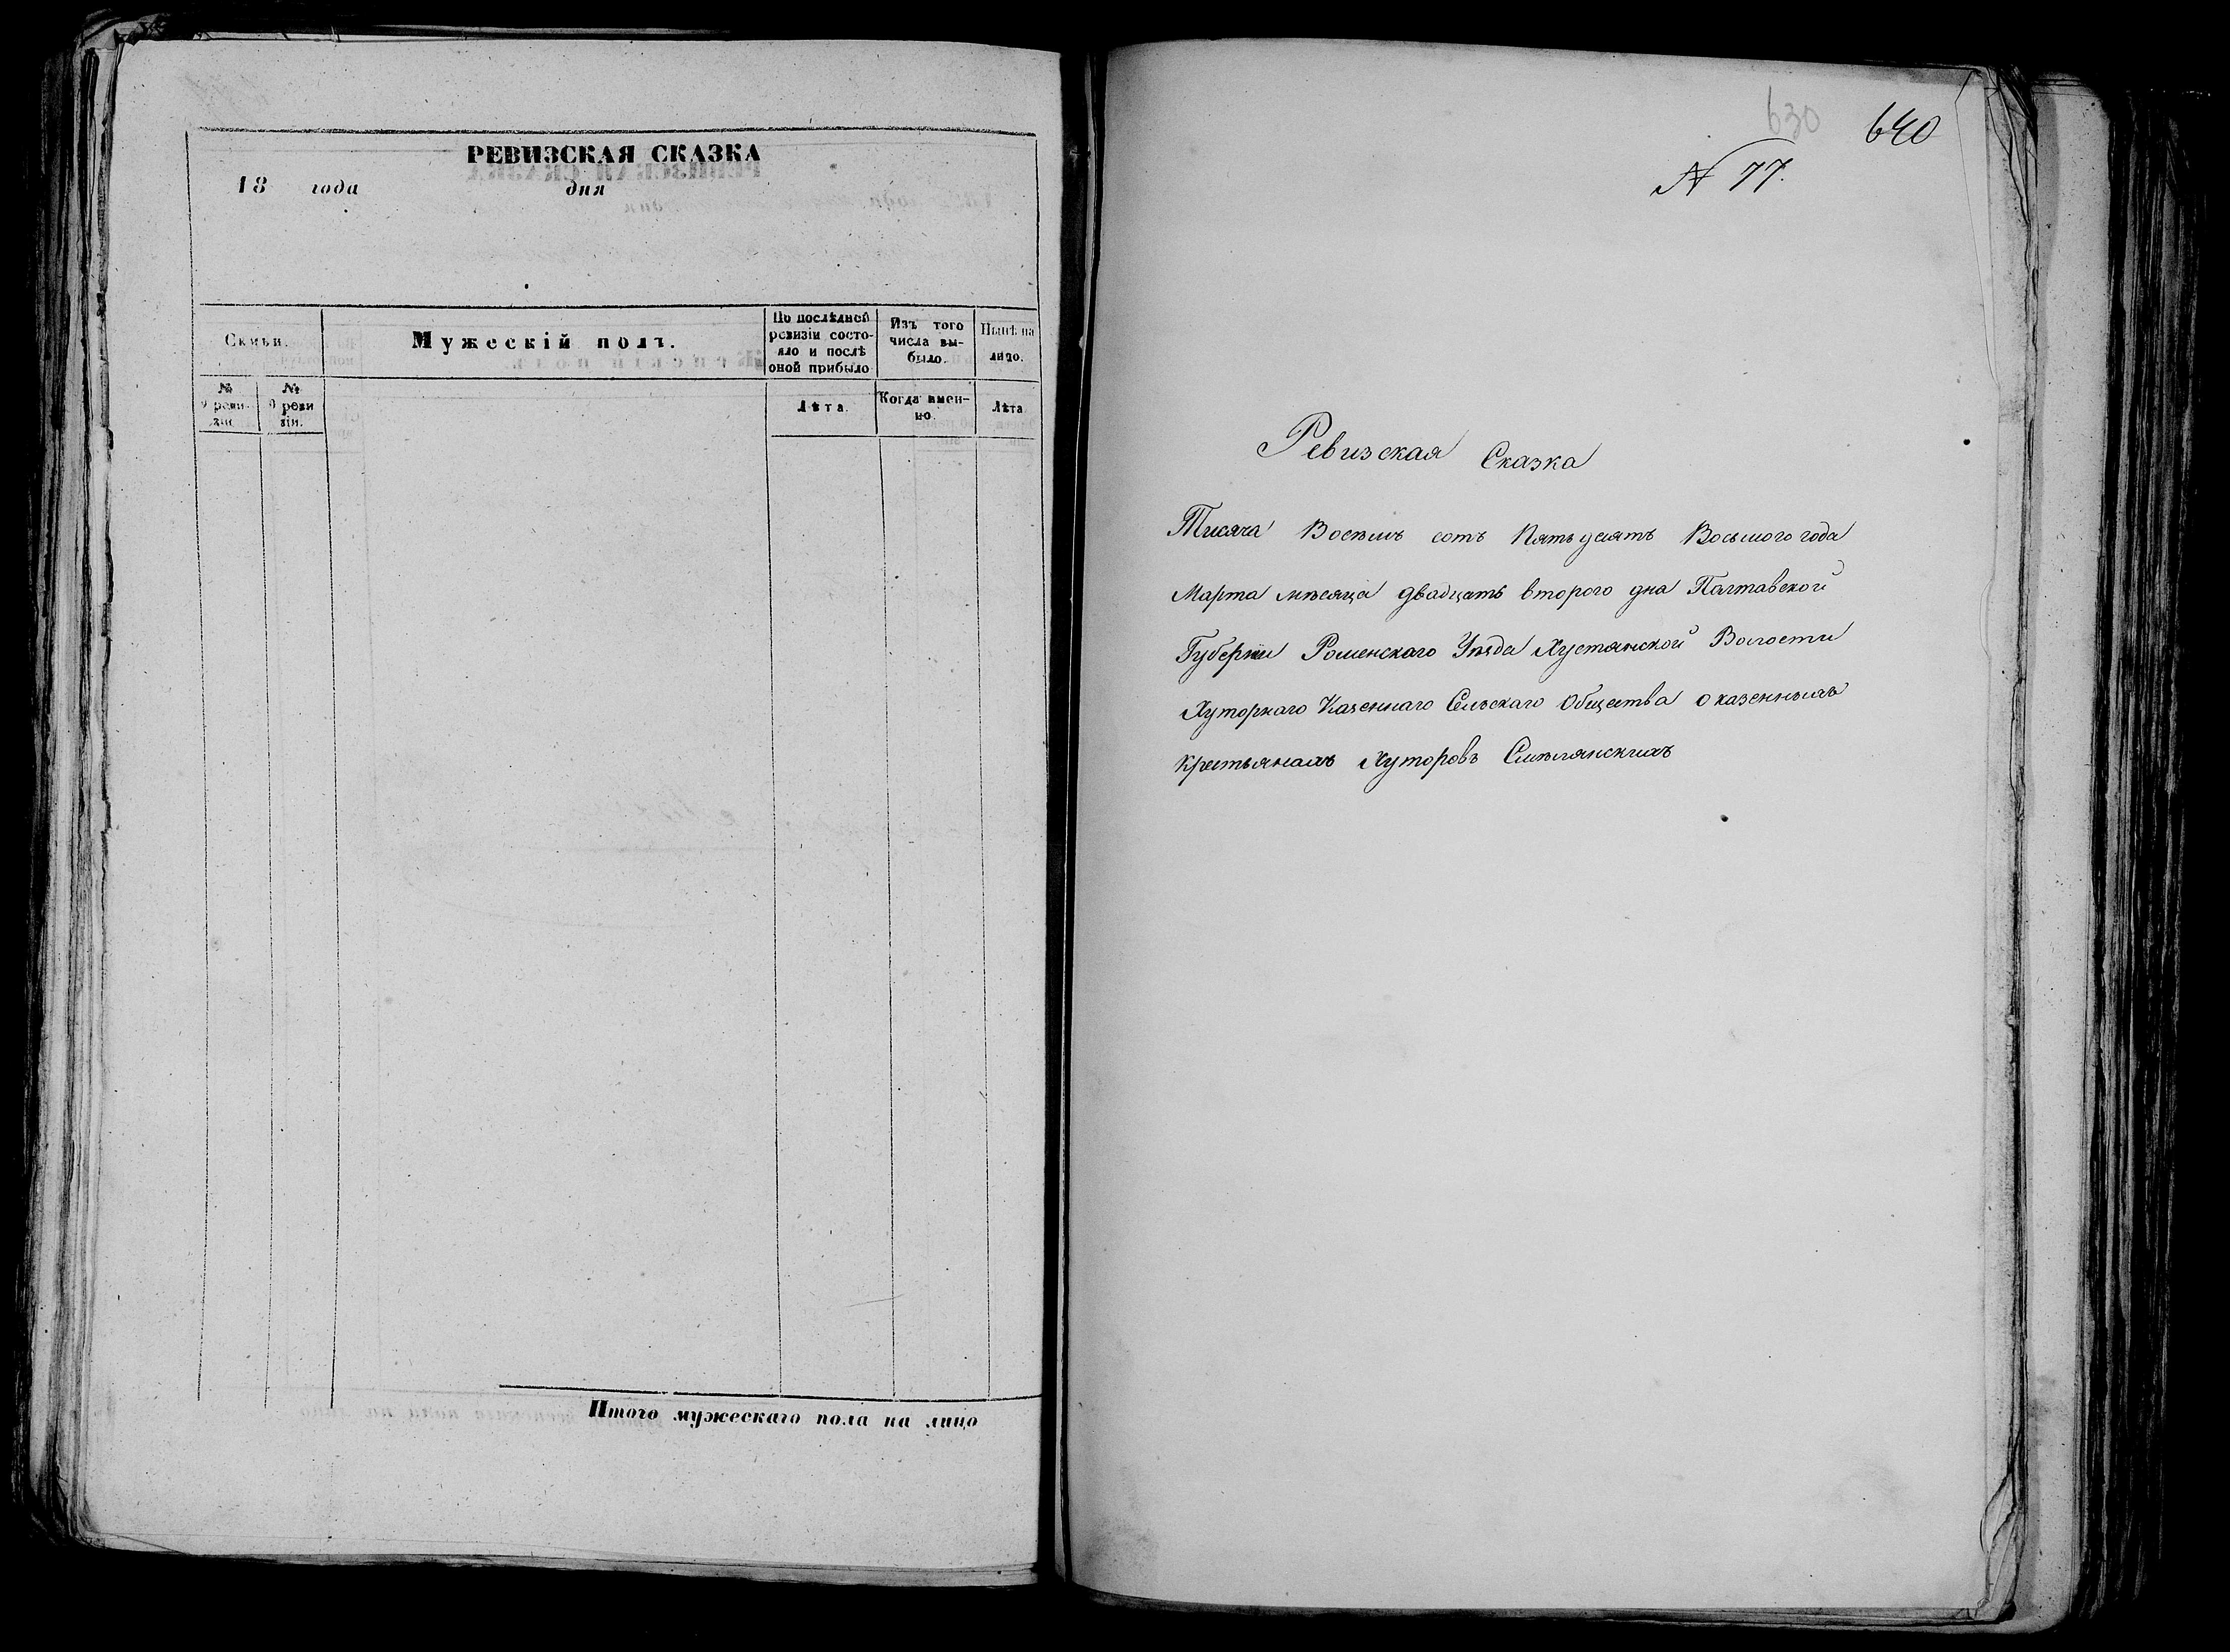 РЕВИЗСКАЯ СКАЗКА
18 года дня
Семьи.
Мужескій полъ.
По послѣдней ревизіи состояло и послѣ оной прибыло
Изъ того числа выбыло.
Нынѣ на лицо.
№ 9 ревизіи.
№ 9 ревизіи.
Лѣта.
Когда именно.
Лѣта
Итого мужескаго пола на лицо
630 640
N 77.
Ревизская Сказка
Тисяча Восемь сотъ Пятьдесятъ Восьмого года
Марта мѣсяца двадцать второго дна Палтавской
Губерніи Роменскаго Уѣзда Хустянской Волости
Хуторнаго Казеннаго Сельскаго Общества о казенныхъ
Крестьянахъ Хуторовъ Смѣлянскихъ